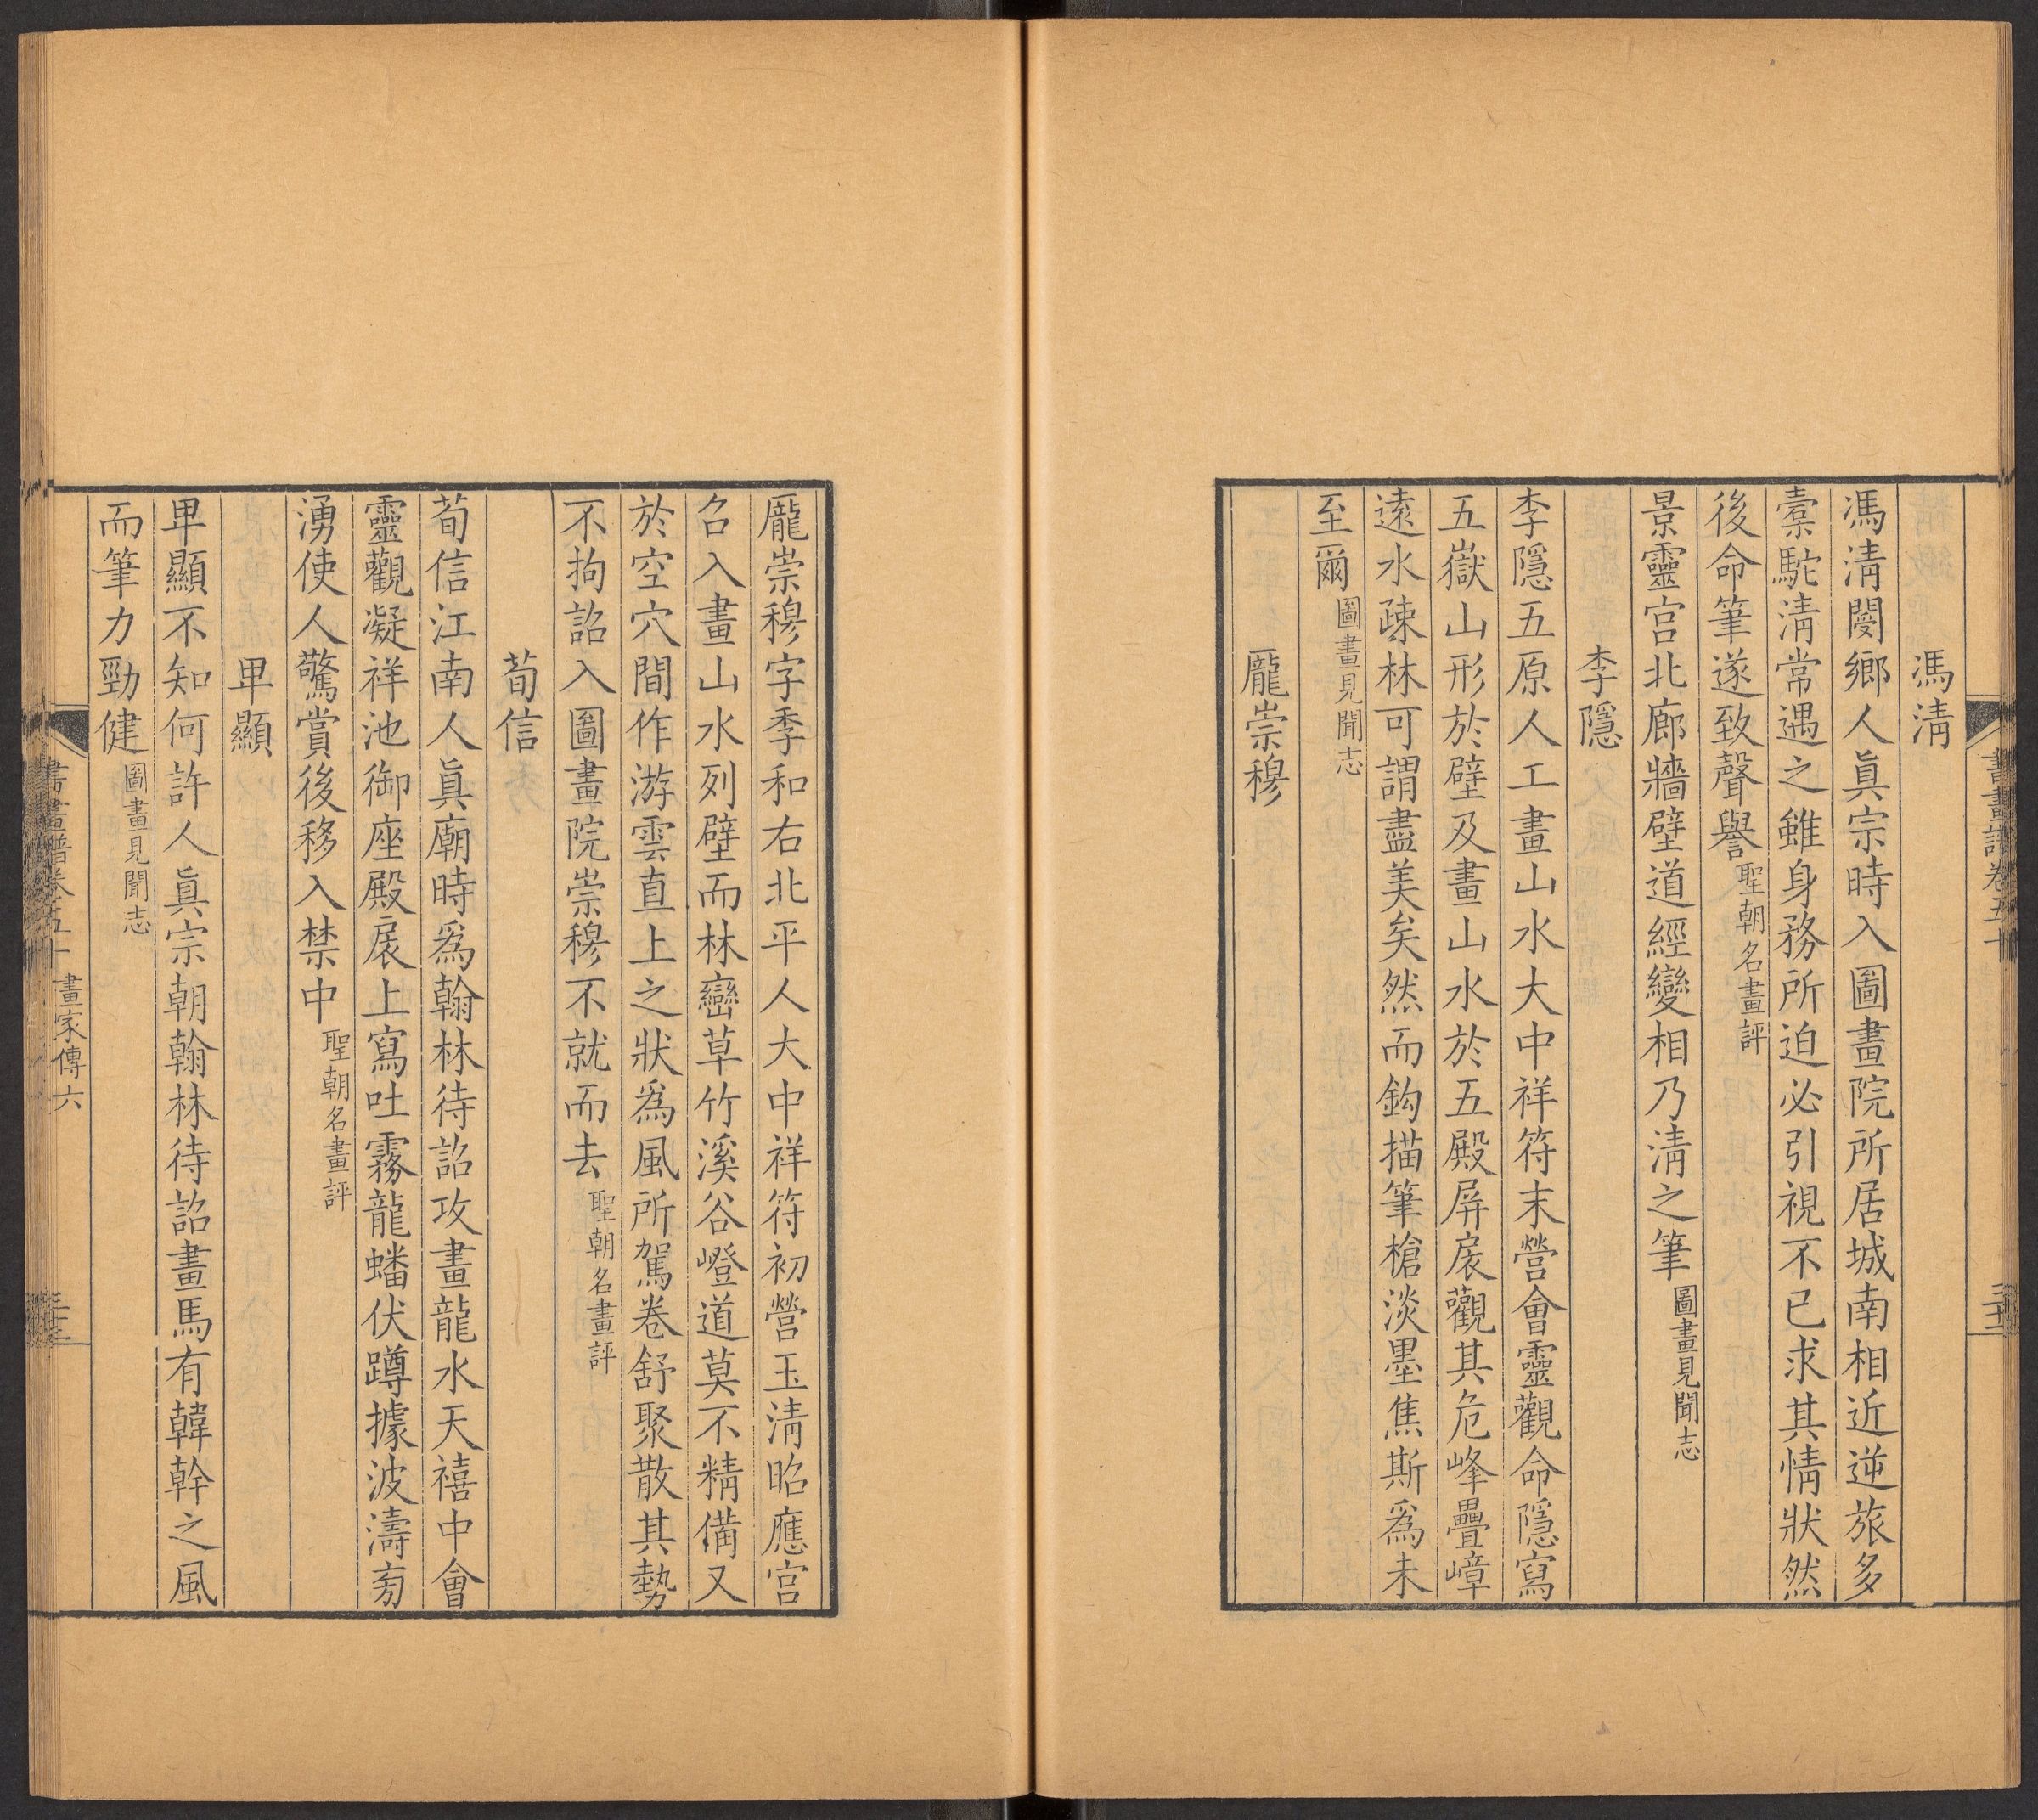 馮淸
馮淸閿鄉人眞宗時入圖畫院所居城南相近逆旅多
槖駝淸常遇之雖身務所迫必引視不已求其情狀然
後命筆遂致聲譽聖朝名畫評
景靈宮北廊牆壁道經變相乃淸之筆圖畫見聞志
李隱
李隱五原人工畫山水大中祥符末營會靈觀命隱寫
五嶽山形於壁及畫山水於五殿屏扆觀其危峰疊嶂
遠水疎林可謂盡美矣然而鈎描筆槍淡墨焦斯爲未
至爾圖畫見聞志
龎崇穆
龎崇穆字季和右北平人大中祥符初營玉淸昭應宮
召入畫山水列壁而林巒草竹溪谷嶝道莫不精備又
於空穴間作游雲直上之狀爲風所駕卷舒聚散其勢
不拘詔入圖畫院崇穆不就而去聖朝名畫評
荀信
荀信江南人眞廟時爲翰林待詔攻畫龍水天禧中會
靈觀凝祥池御座殿扆上寫吐霧龍蟠伏蹲據波濤㐫
湧使人驚賞後移入禁中聖朝名畫評
𤰞顯
𤰞顯不知何許人眞宗朝翰林待詔畫馬有韓幹之風
而筆力勁健圖畫見聞志
書畫譜卷五十 畫家傳六